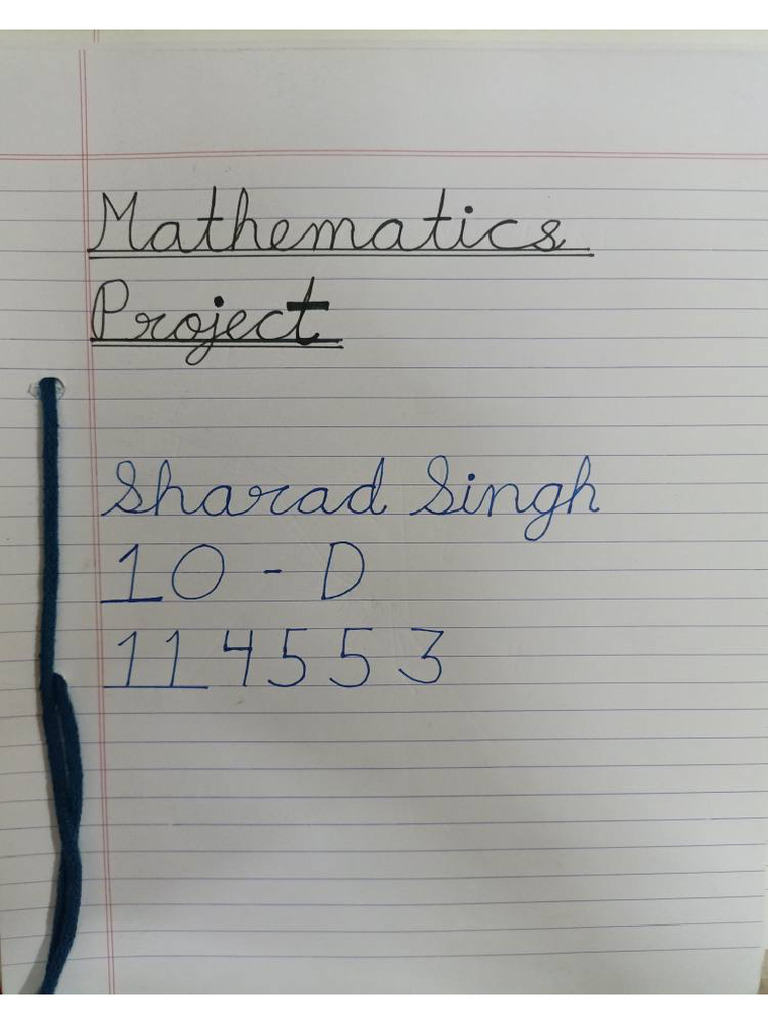 Mathematics
Project
Sharad Singh
10 - D
114553